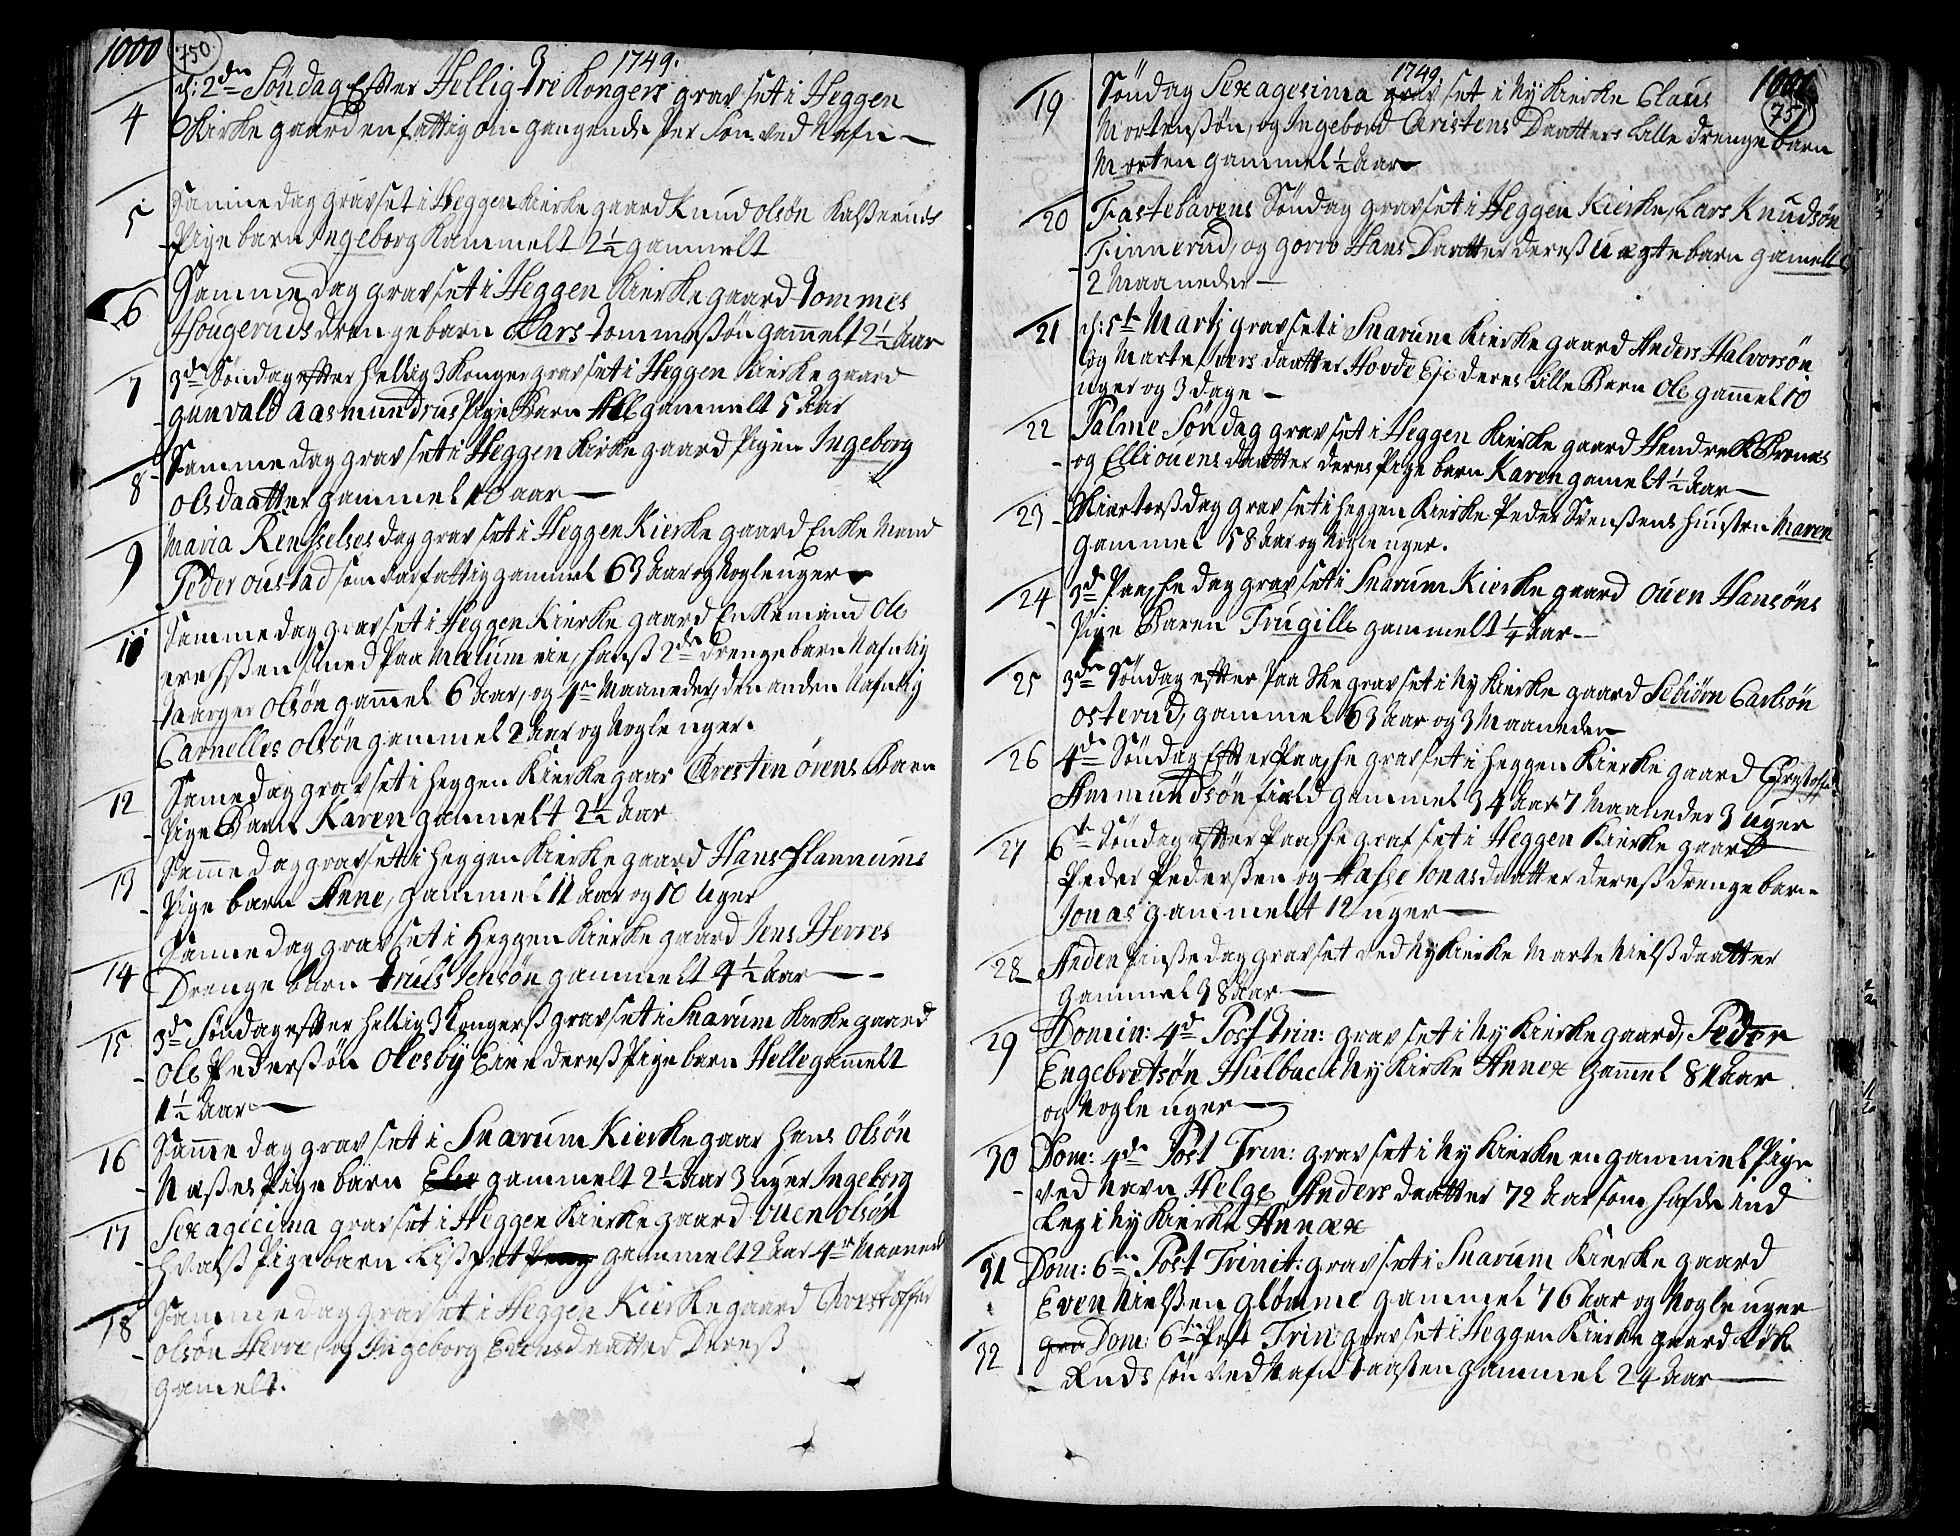 1000
750.
1749.
d: 2den Søndag Efter Hellig Tre Kongers gravset i Heggen
4 Kirke gaard en fattig om gangende Per Son ved Nafn
5 Samme dag gravset i Heggen Kierke gaard Knud Olsøn
Pige barn Ingeborg Kammelt 2½ gammelt
6 Samme dag gravset i Heggen Kierke gaard Tommes
Hougeruds drenge barn Lars Tommesøn gammelt 2½ Aar
7 3de Søndag efter Hellig 3 Konger gravset i Heggen Kierke gaard
gunvald Aasmundrus Pige Barn gammelt 5 Aar
8 Samme dag gravset i Heggen Kirke gaard Pigen Ingeborg
olsdaatter gammel 10 aar
9 Maria Renselses dag gravset i Heggen Kierke gaard Enke Mand
Peder oustad som var fattig gammel 63 Aar og Nogle uger
11 Samme dag gravset i Heggen Kierke gaard Enkemand Ole
smed Paa Modum eie, hans 2de drenge barn Nafnlig
olsøn gammel 6 Aar, og 4re Maaneder, den anden Nafnlig
Carnelles olsøn gammel 2 Aar og Nogle uger.
12 Same dag gravset i heggen Kierke gaar Cresten ørens Barn
Pige Barn Karen gammelt 2½ Aar
13 Samme dag gravset i heggen Kierke gaard Hans flannums
Pige barn Anne, gammel 11 Aar og 10 Uger
14 Samme dag gravset i Heggen Kierke gaard Jens Herres
Drenge barn Truls Jensøn gammelt 4½ Aar
15 3de Søndag efter hellig 3 Kongerß gravset i Snarum Kirke gaard
Ole Pederßøn Olesby Eie dereß Pige barn Helle gamelt
1½ Aar
16 Samme dag gravset i Snarum Kierke gaar hans olsøn
Næsses Pige barn gammelt 2½ Aar 3 uger Ingeborg
17 Sexagecima gravset i Heggen Kierke gaard ouen olsøn
Pige barn Lißpet gammelt 2 Aar 4re Maaned
18 Samme dag gravset i Heggen Kierke gaard Chrestoffer
olsøn Herre, og Ingeborg Evensdaatter Dereß
gamelt.
1001
751
1749.
19 Søndag Sexagesima grav set i Ny Kierke Claus
Mortenßøn, og Ingebord Cristens Daatters Lille drenge barn
Morten gammel ½ Aar
20 Fastelavens Søndag gravset i Heggen Kierke, Lars Knudsøn
Finnerud, og gorro Hans Daatter dereß uægte barn gamelt
2 Maaneder
21 d: 5te Martj gravset i Snarum Kierke gaard Anders Halvorsøn
og Marte Ivers daatter Hovde Eje deres Lille Barn Ole gammel 10
uger og 3 dage
22 Palme Søndag gravset i Heggen Kierke gaard Hendrek
og Elli ouens daatter deres Pige barn Karen gamelt ½ Aar
23 Skiertorßdag gravset i heggen Kierke Peder Svenßens hustru Maren
gammel 58 Aar og Nogle uger.
24 3de Paaske dag gravset i Snarum Kierke gaard ouen Hansøns
Pige Baren Trugille gammelt ¼ Aar
25 3de Søndag efter Paaske gravset i Ny Kierke gaard Sebiørn Carlsøn
osterud, gammel 63 Aar og 3 Maaneder
26 4de Søndag Efter Paaske gravset i heggen Kierke gaard Chrestoffer
Asmundsøn field gammel 34 Aar 7 Maaneder 3 uger
27 6te Søndag efter Paaske grafset i Heggen Kierke gaard
Peder Pederßen og Jonasdaatter dereß drenge barn
Jonas gammelt 12 uger
28 Anden Pinse dag gravset ved Ny Kierke Marte Nielß daatter
gammel 38 Aar
29 Domin: 4de Post trin: gravset i Ny Kierke gaard, Peder
Engebretsøn Hulbac i Ny Kirke Annex gammel 81 Aar
og Nogle uger
30 Dom: 4de Post Trin: gravset i Ny Kierke en gammel Pige
ved Navn Helge Anders daatter 72 Aar som hafde ind
Leg i Ny Kierke Annex
31 Dom: 6te Post Trinit: gravset i Snarum Kierke gaard
Even Nielßen glømme gammel 76 Aar og Nogle uger
32 gra Dom: 6te Post Trin: gravset i Heggen Kierke gaard
Knudsøn ved Nafn gammel 24 Aar